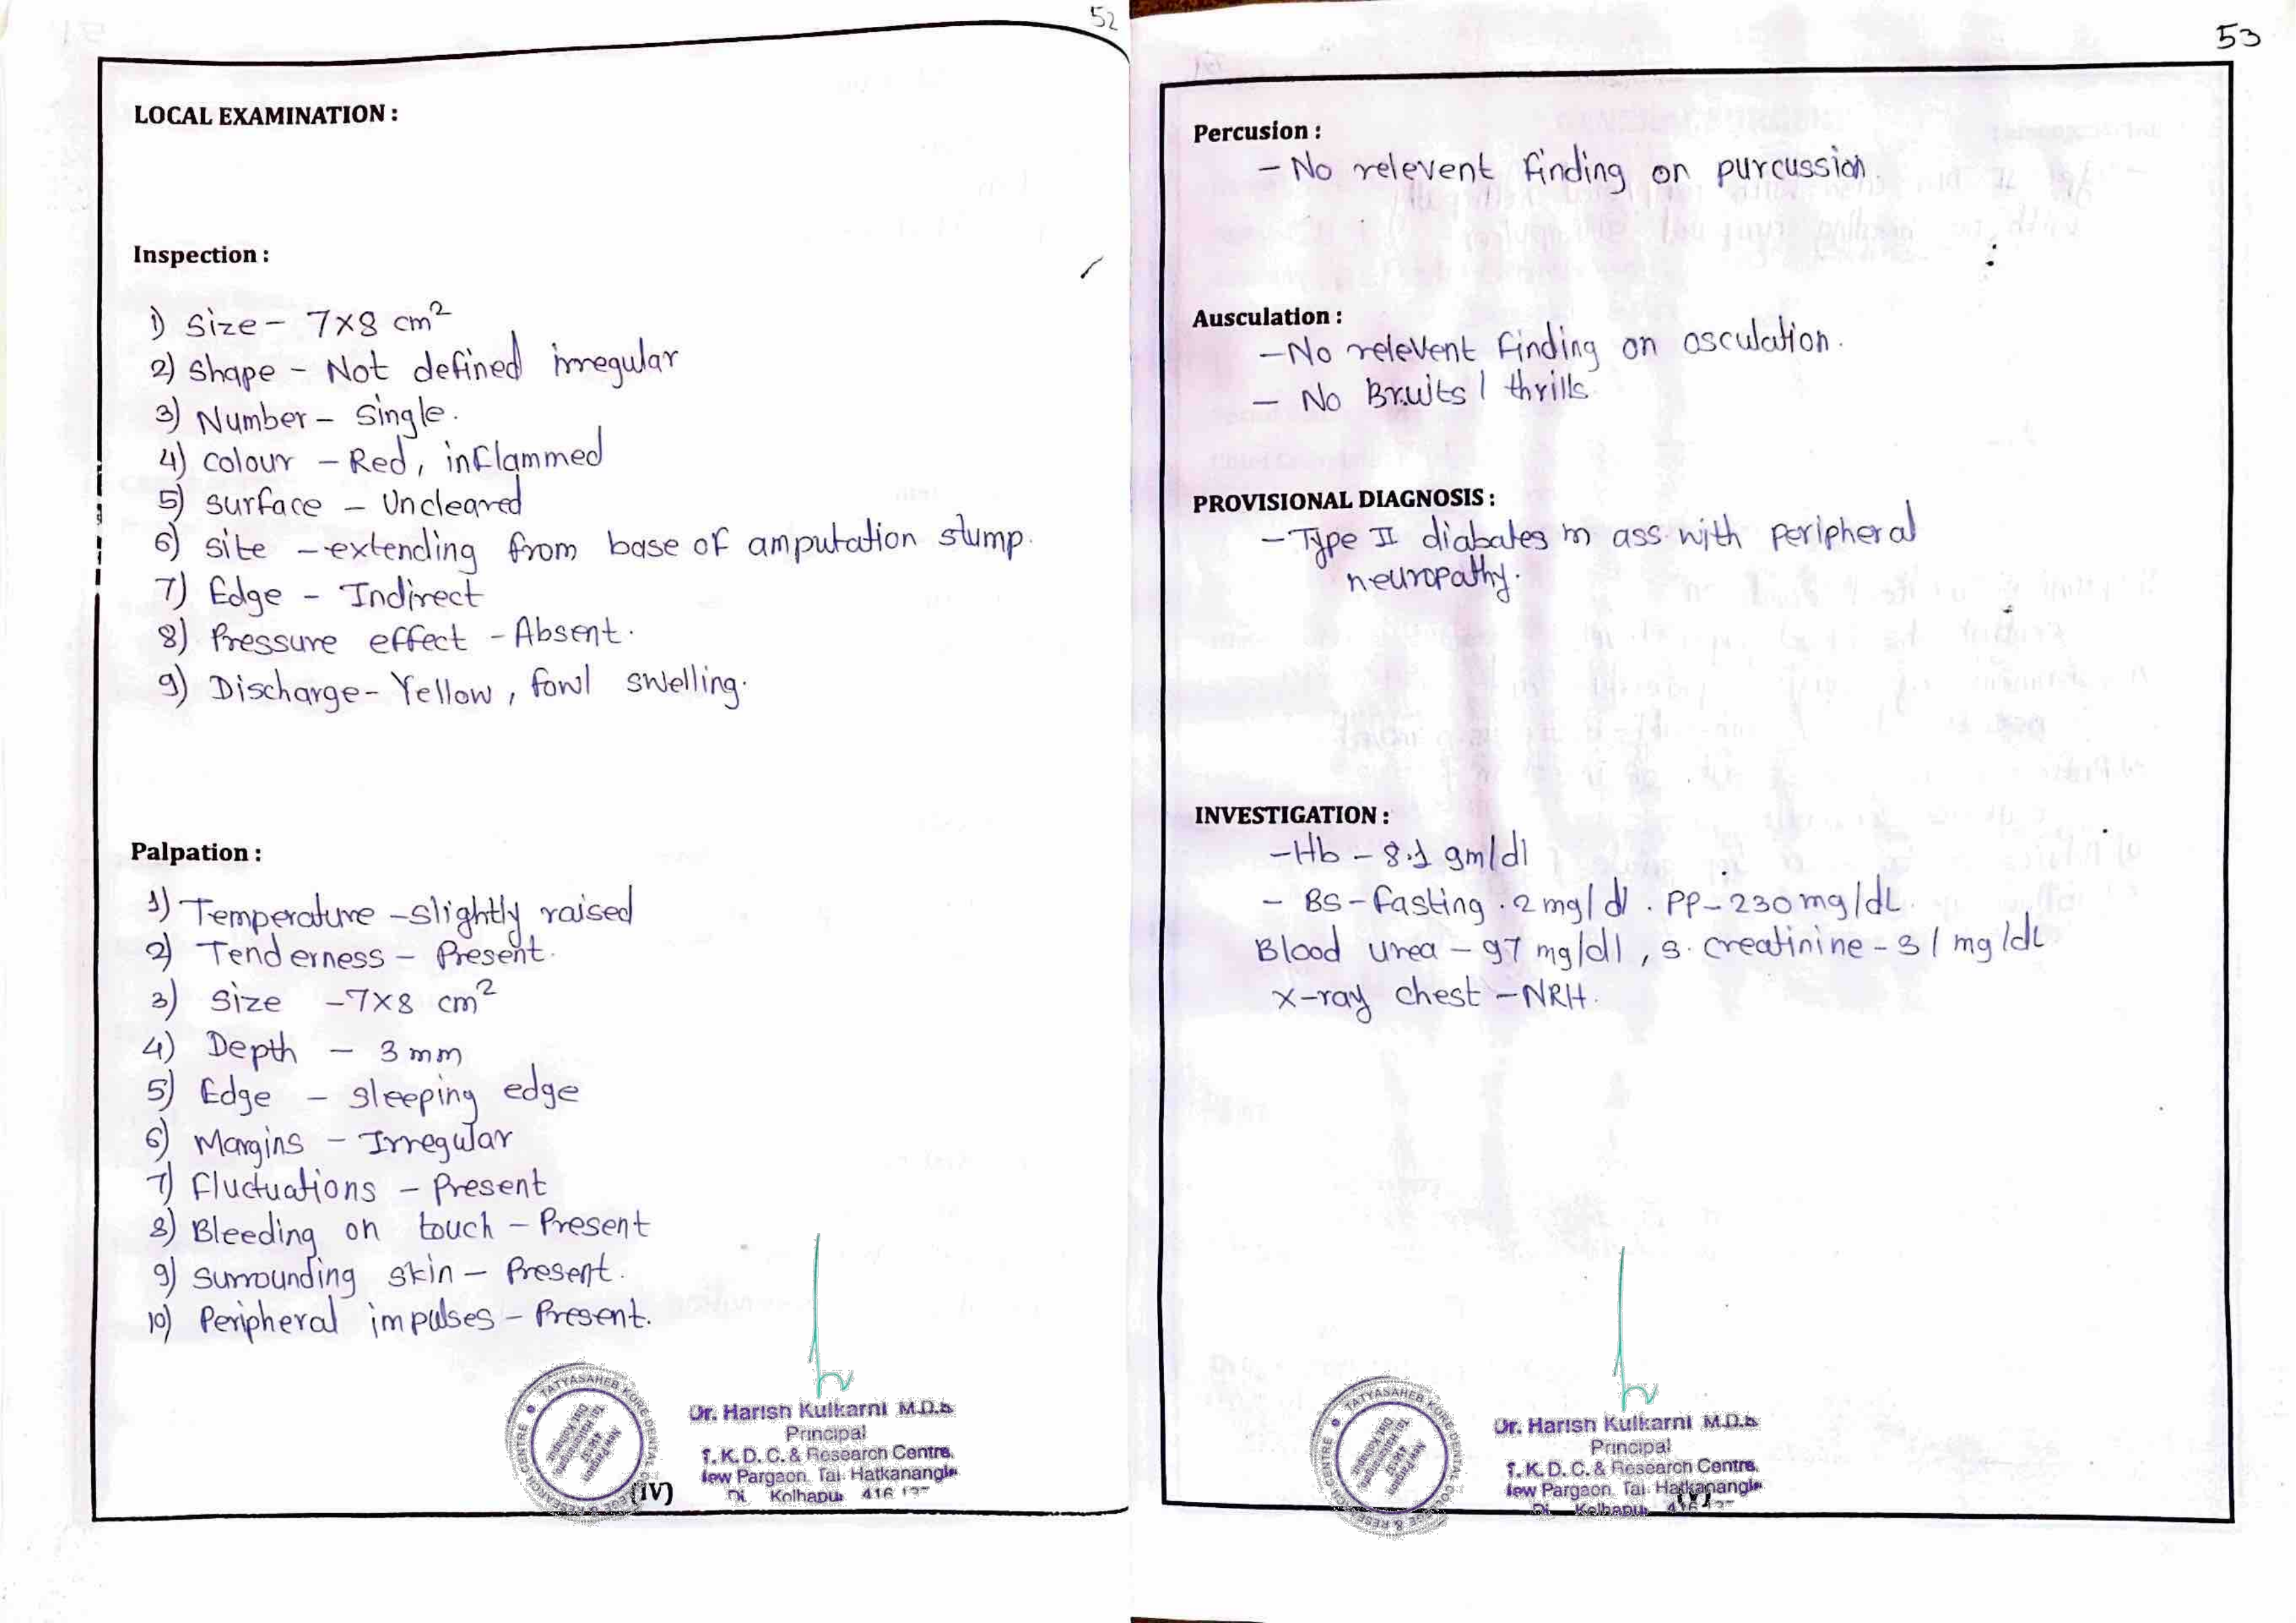 52
LOCAL EXAMINATION :
Inspection :
1) Size - 7x8 cm²
2) Shape - Not defined irregular
3) Number - Single.
4) Colour - Red, inflammed
5) Surface - Uncleared
6) Site - extending from base of amputation stump.
7) Edge - Indirect
8) Pressure effect - Absent.
9) Discharge - Yellow, fowl swelling.
Palpation :
1) Temperature - slightly raised
2) Tenderness - Present.
3) Size - 7x8 cm²
4) Depth - 3 mm
5) Edge - sleeping edge
6) Margins - Irregular
7) Fluctuations - Present
8) Bleeding on touch - Present
9) Surrounding skin - Present.
10) Peripheral impulses - Present.
TATYASAHEB KORE DENTAL COLLEGE & RESEARCH CENTRE
New Pargaon
Tal. Hatkanangle
Dist. Kolhapur
(IV)
Dr. Harish Kulkarni M.D.S
Principal
T. K. D. C. & Research Centre.
New Pargaon. Tal. Hatkanangle
Di. Kolhapur 416 137
53
Percusion :
- No relevent finding on purcussion.
Ausculation :
- No relevent finding on osculation.
- No Bruits / thrills.
PROVISIONAL DIAGNOSIS :
- Type II diabates m ass. with peripheral
neuropathy.
INVESTIGATION :
- Hb - 8.1 gm/dl
- BS - fasting . 2 mg/dl . PP - 230 mg/dL.
Blood urea - 97 mg/dl, s. creatinine - 3 / mg/dL
X-ray chest - NRH.
TATYASAHEB KORE DENTAL COLLEGE & RESEARCH CENTRE
New Pargaon
Tal. Hatkanangle
Dist. Kolhapur
Dr. Harish Kulkarni M.D.S
Principal
T. K. D. C. & Research Centre.
New Pargaon. Tal. Hatkanangle
Di. Kolhapur 416 137